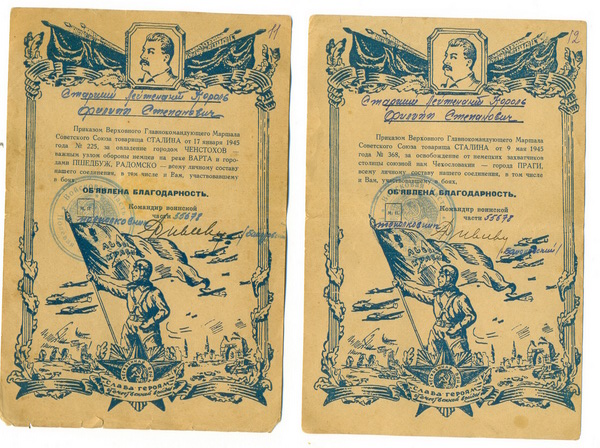 11
Старший лейтенант Король
Степанович
Приказом Верховного Главнокомандующего Маршала
Советского Союза товарища СТАЛИНА от 17 января 1945
года № 225, за овладение городом ЧЕНСТОХОВ —
важным узлом обороны немцев на реке ВАРТА и горо-
дами ПШЕДБУЖ, РАДОМСКО — всему личному составу
нашего соединения, в том числе и Вам, участвовавшему
в боях,
ОБ'ЯВЛЕНА БЛАГОДАРНОСТЬ.
Командир воинской
части 55678
СЛАВА ГЕРОЯМ
12
Старший лейтенант Король
Степанович
Приказом Верховного Главнокомандующего Маршала
Советского Союза товарища СТАЛИНА от 9 мая 1945
года № 368, за освобождение от немецких захватчиков
столицы союзной нам Чехословакии — города ПРАГИ,
всему личному составу нашего соединения, в том числе
и Вам, участвовавшему в боях,
ОБ'ЯВЛЕНА БЛАГОДАРНОСТЬ.
Командир воинской
части 55678
СЛАВА ГЕРОЯМ